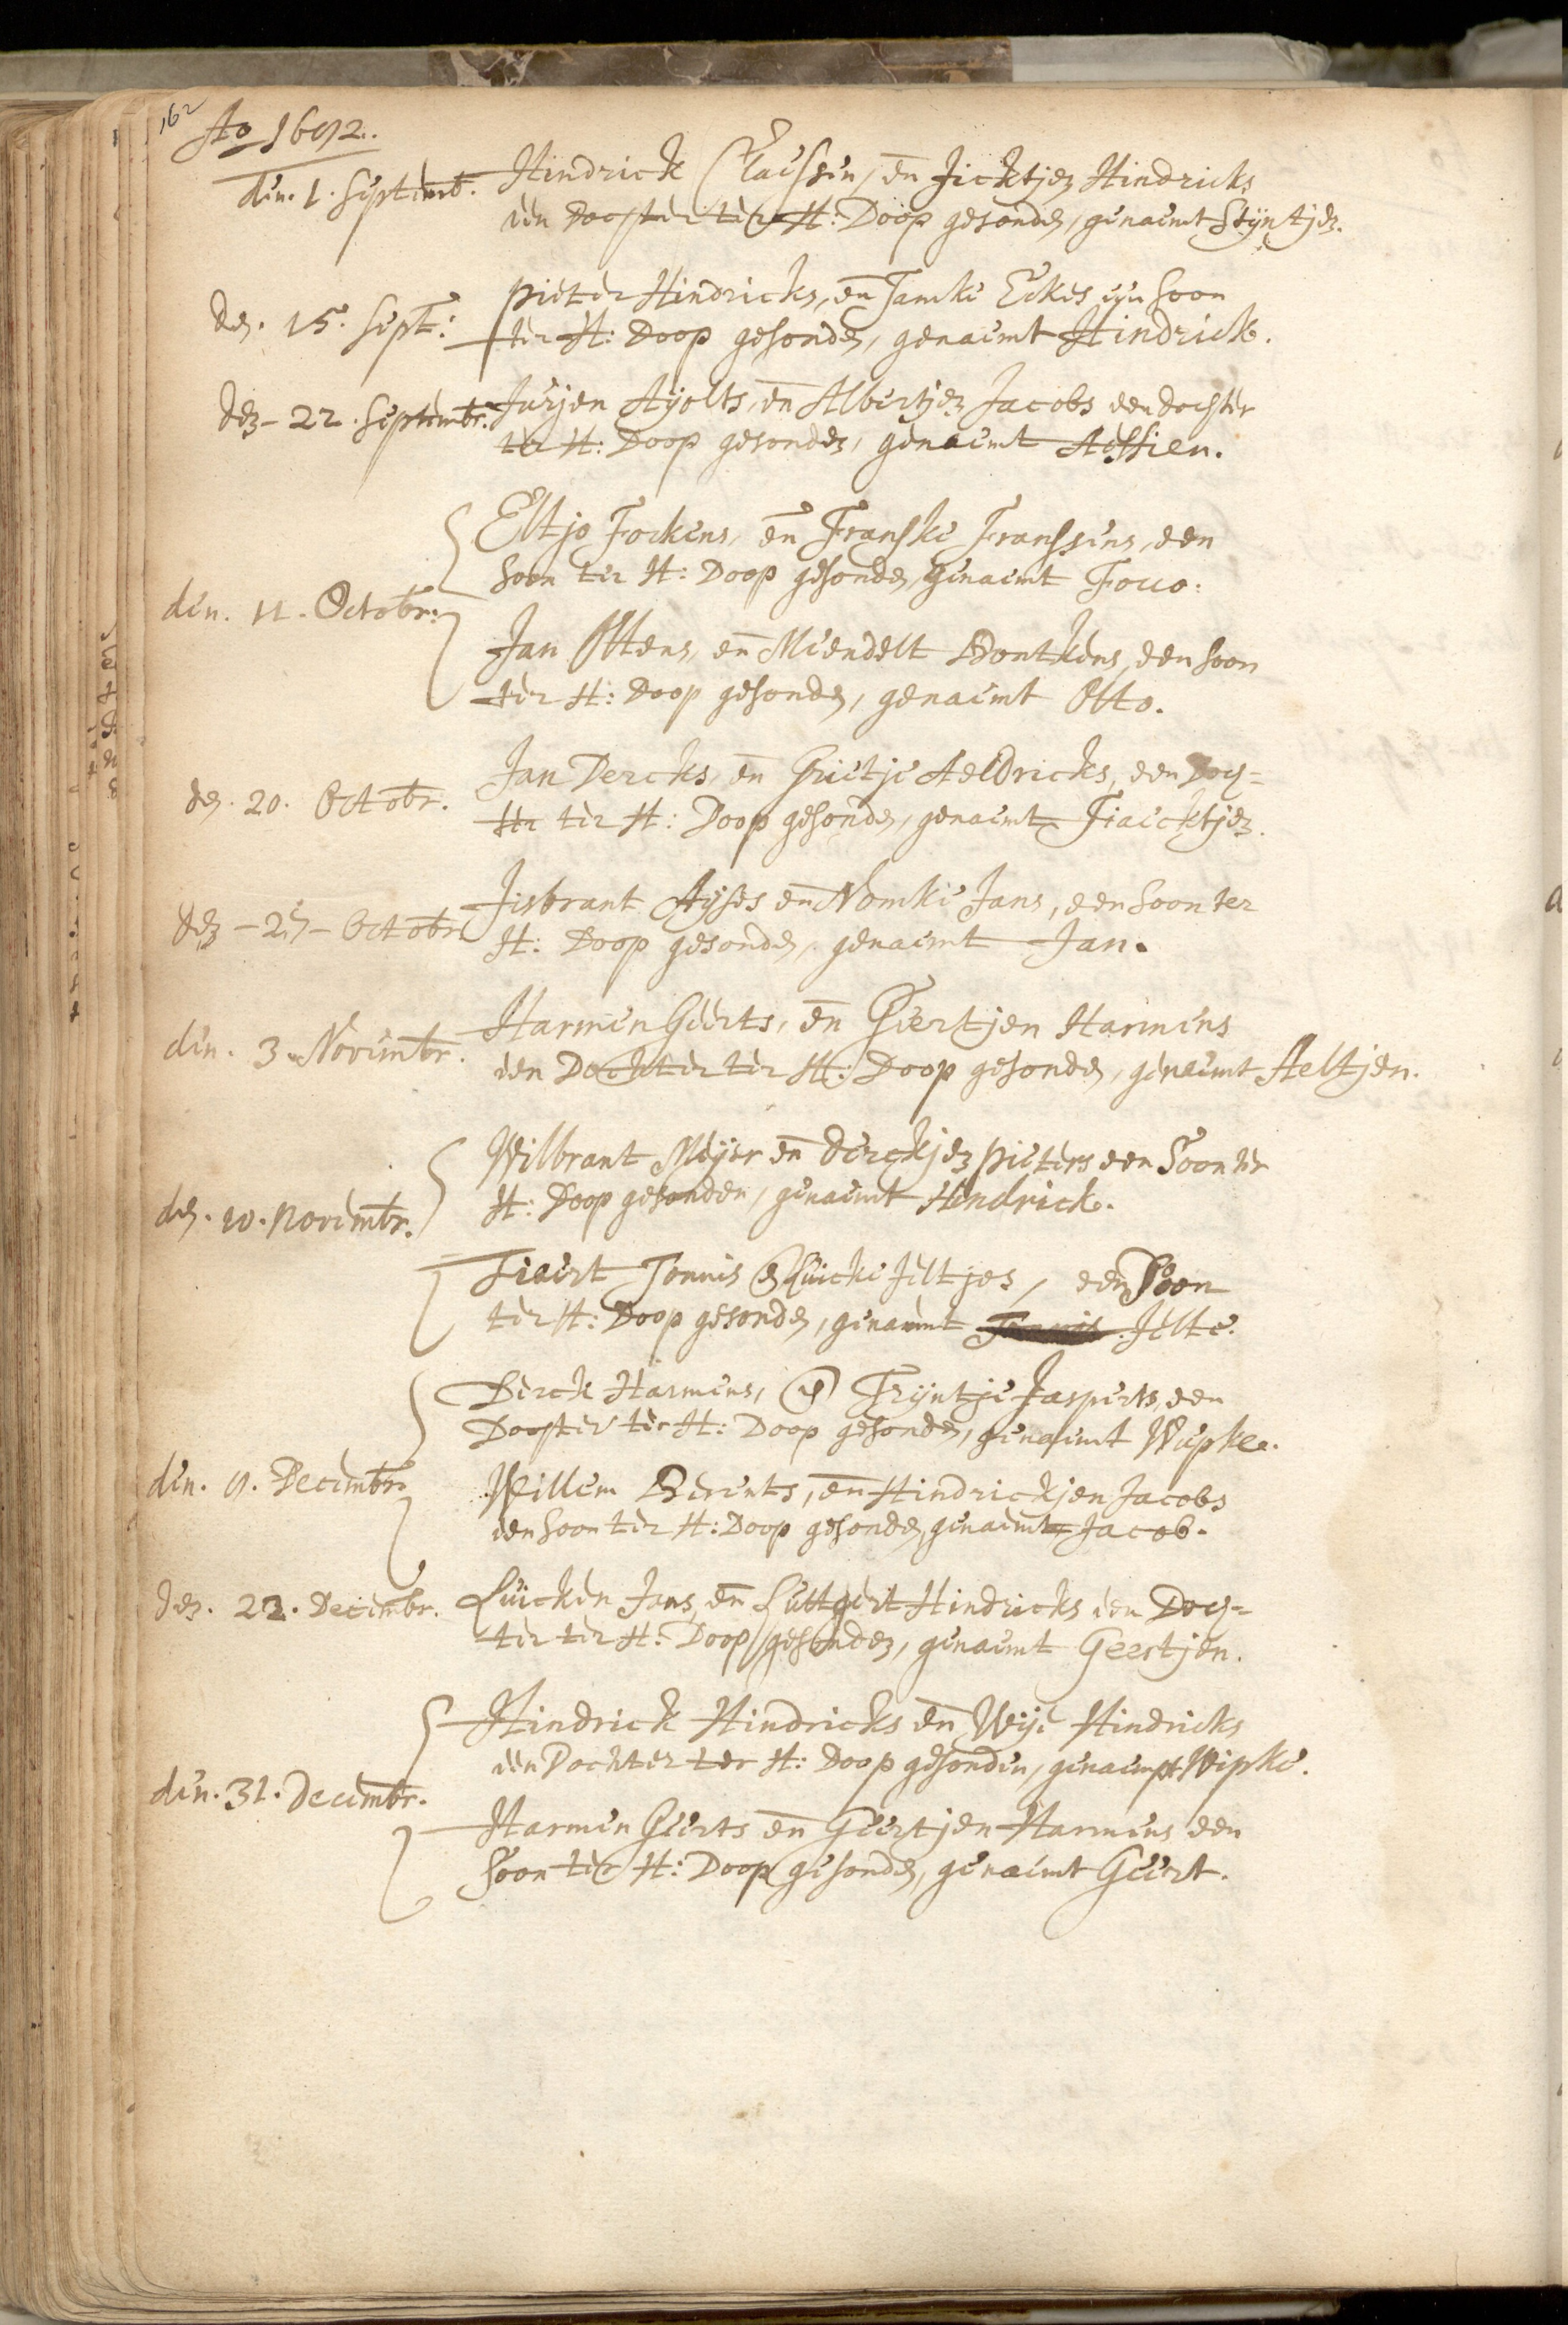 162
Ao 1692.
den. 1. Septemb. Hindrick Claessen, en Jicktjen Hindricks
een Dochter ter H: Doop gesonden, genaemt Stijntjen.
den. 15. Sept: Pieter Hindricks, en Jamke Eckes een Soon
ter H: Doop gesonden, genaemt Hindrick.
den - 22. Septembr. Jurjen Aijolts, en Albertjen Jacobs een dochter
ter H: Doop gesonden, genaemt Aeffien.
Eltjo Fockens, en Franske Franssens, een
Soon ter H: Doop gesonden, genaemt Focco.
den. 11. Octobr:
Jan Ottens, en Meendelt Bontkens, een Soon
ter H: Doop gesonden, genaemt Otto.
den. 20. Octobr. Jan Dercks, en Grietje Aeldricks, een Doch=
ter ter H: Doop gesonden, genaemt Tiaecktjen.
den - 27 - Octobr. Jisbrant Aijses en Nomke Jans, een Soon ter
H: Doop gesonden, genaemt Jan.
den. 3. Novembr. Harmen Geerts, en Geertjen Harmens
een Dochter ter H: Doop gesonden, genaemt Aeltjen.
Wilbrant Meijer en Derckjen Pieters een Soon ter
den. 10. Novembr. H: Doop gesonden, genaemt Hendrick.
Tiaert Tonnis en Luicke Jeltjes, een Soon
ter H: Doop gesonden, genaemt Tonnis. Jelte.
Derck Harmens, en Trijntje Jasperts, een
Dochter ter H: Doop gesonden, genaemt Wupke.
den. 9. Decembr. Willem Berents, en Hindrickjen Jacobs
een Soon ter H: Doop gesonden, genaemt Jacob.
den. 22. Decembr. Luicken Jans, en Luttgert Hindricks een Doch=
ter ter H: Doop gesonden, genaemt Geertjen.
Hindrick Hindricks en Wije Hindricks
een Dochter ter H: Doop gesonden, genaempt Wipke.
den. 31. Decembr.
Harmen Geerts en Geertjen Harmens een
Soon ter H: Doop gesonden, genaemt Geert.